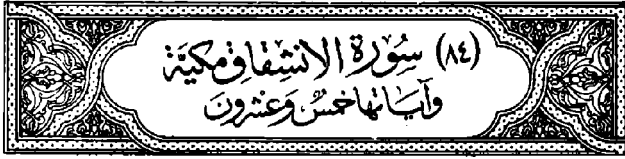 (٨٤) سُورَة الانشِقاق مكيَّة
وَآيَاتهَا خمسٌ وَعشرُونَ